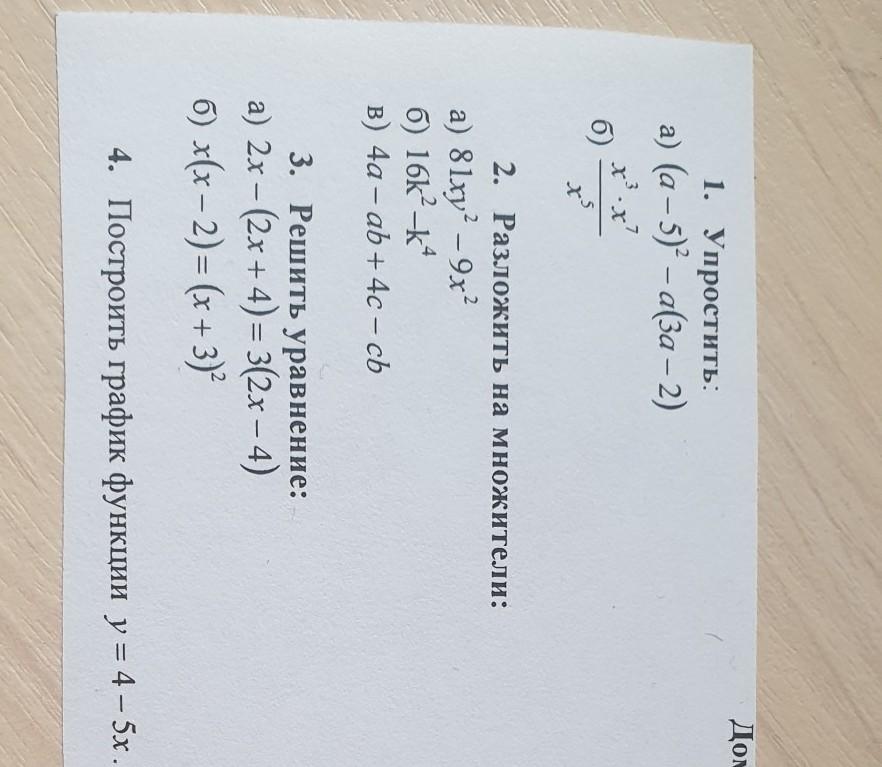 Дом
1. Упростить:
а) (a − 5)² − a(3a − 2)
б) x³ · x⁷ / x⁵
2. Разложить на множители:
а) 81xy² − 9x²
б) 16k² − k⁴
в) 4a − ab + 4c − cb
3. Решить уравнение:
а) 2x − (2x + 4) = 3(2x − 4)
б) x(x − 2) = (x + 3)²
4. Построить график функции y = 4 − 5x.